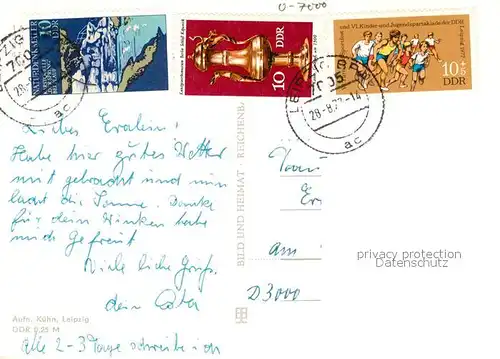 0-7000
NATURDENKMÄLER
10
DDR
10
DDR
und VI. Kinder- und Jugendspartakiade der DDR
Leipzig 1977
10+5
DDR
LEIPZIG BPA
7005
28.-8.77-14
ac
ac
Liebes Evalein!
Habe hier gutes Wetter
mit gebracht und nun
lacht die Sonne. Danke
für dein Winken habe
mich gefreut
Viele liebe Grüße
dein Vater
alle 2-3 Tage schreibe ich
Aufn. Kühn, Leipzig
DDR 0,25 M
BILD UND HEIMAT · REICHENBA
Frau
Er
Am
D3000
privacy protection
Datenschutz